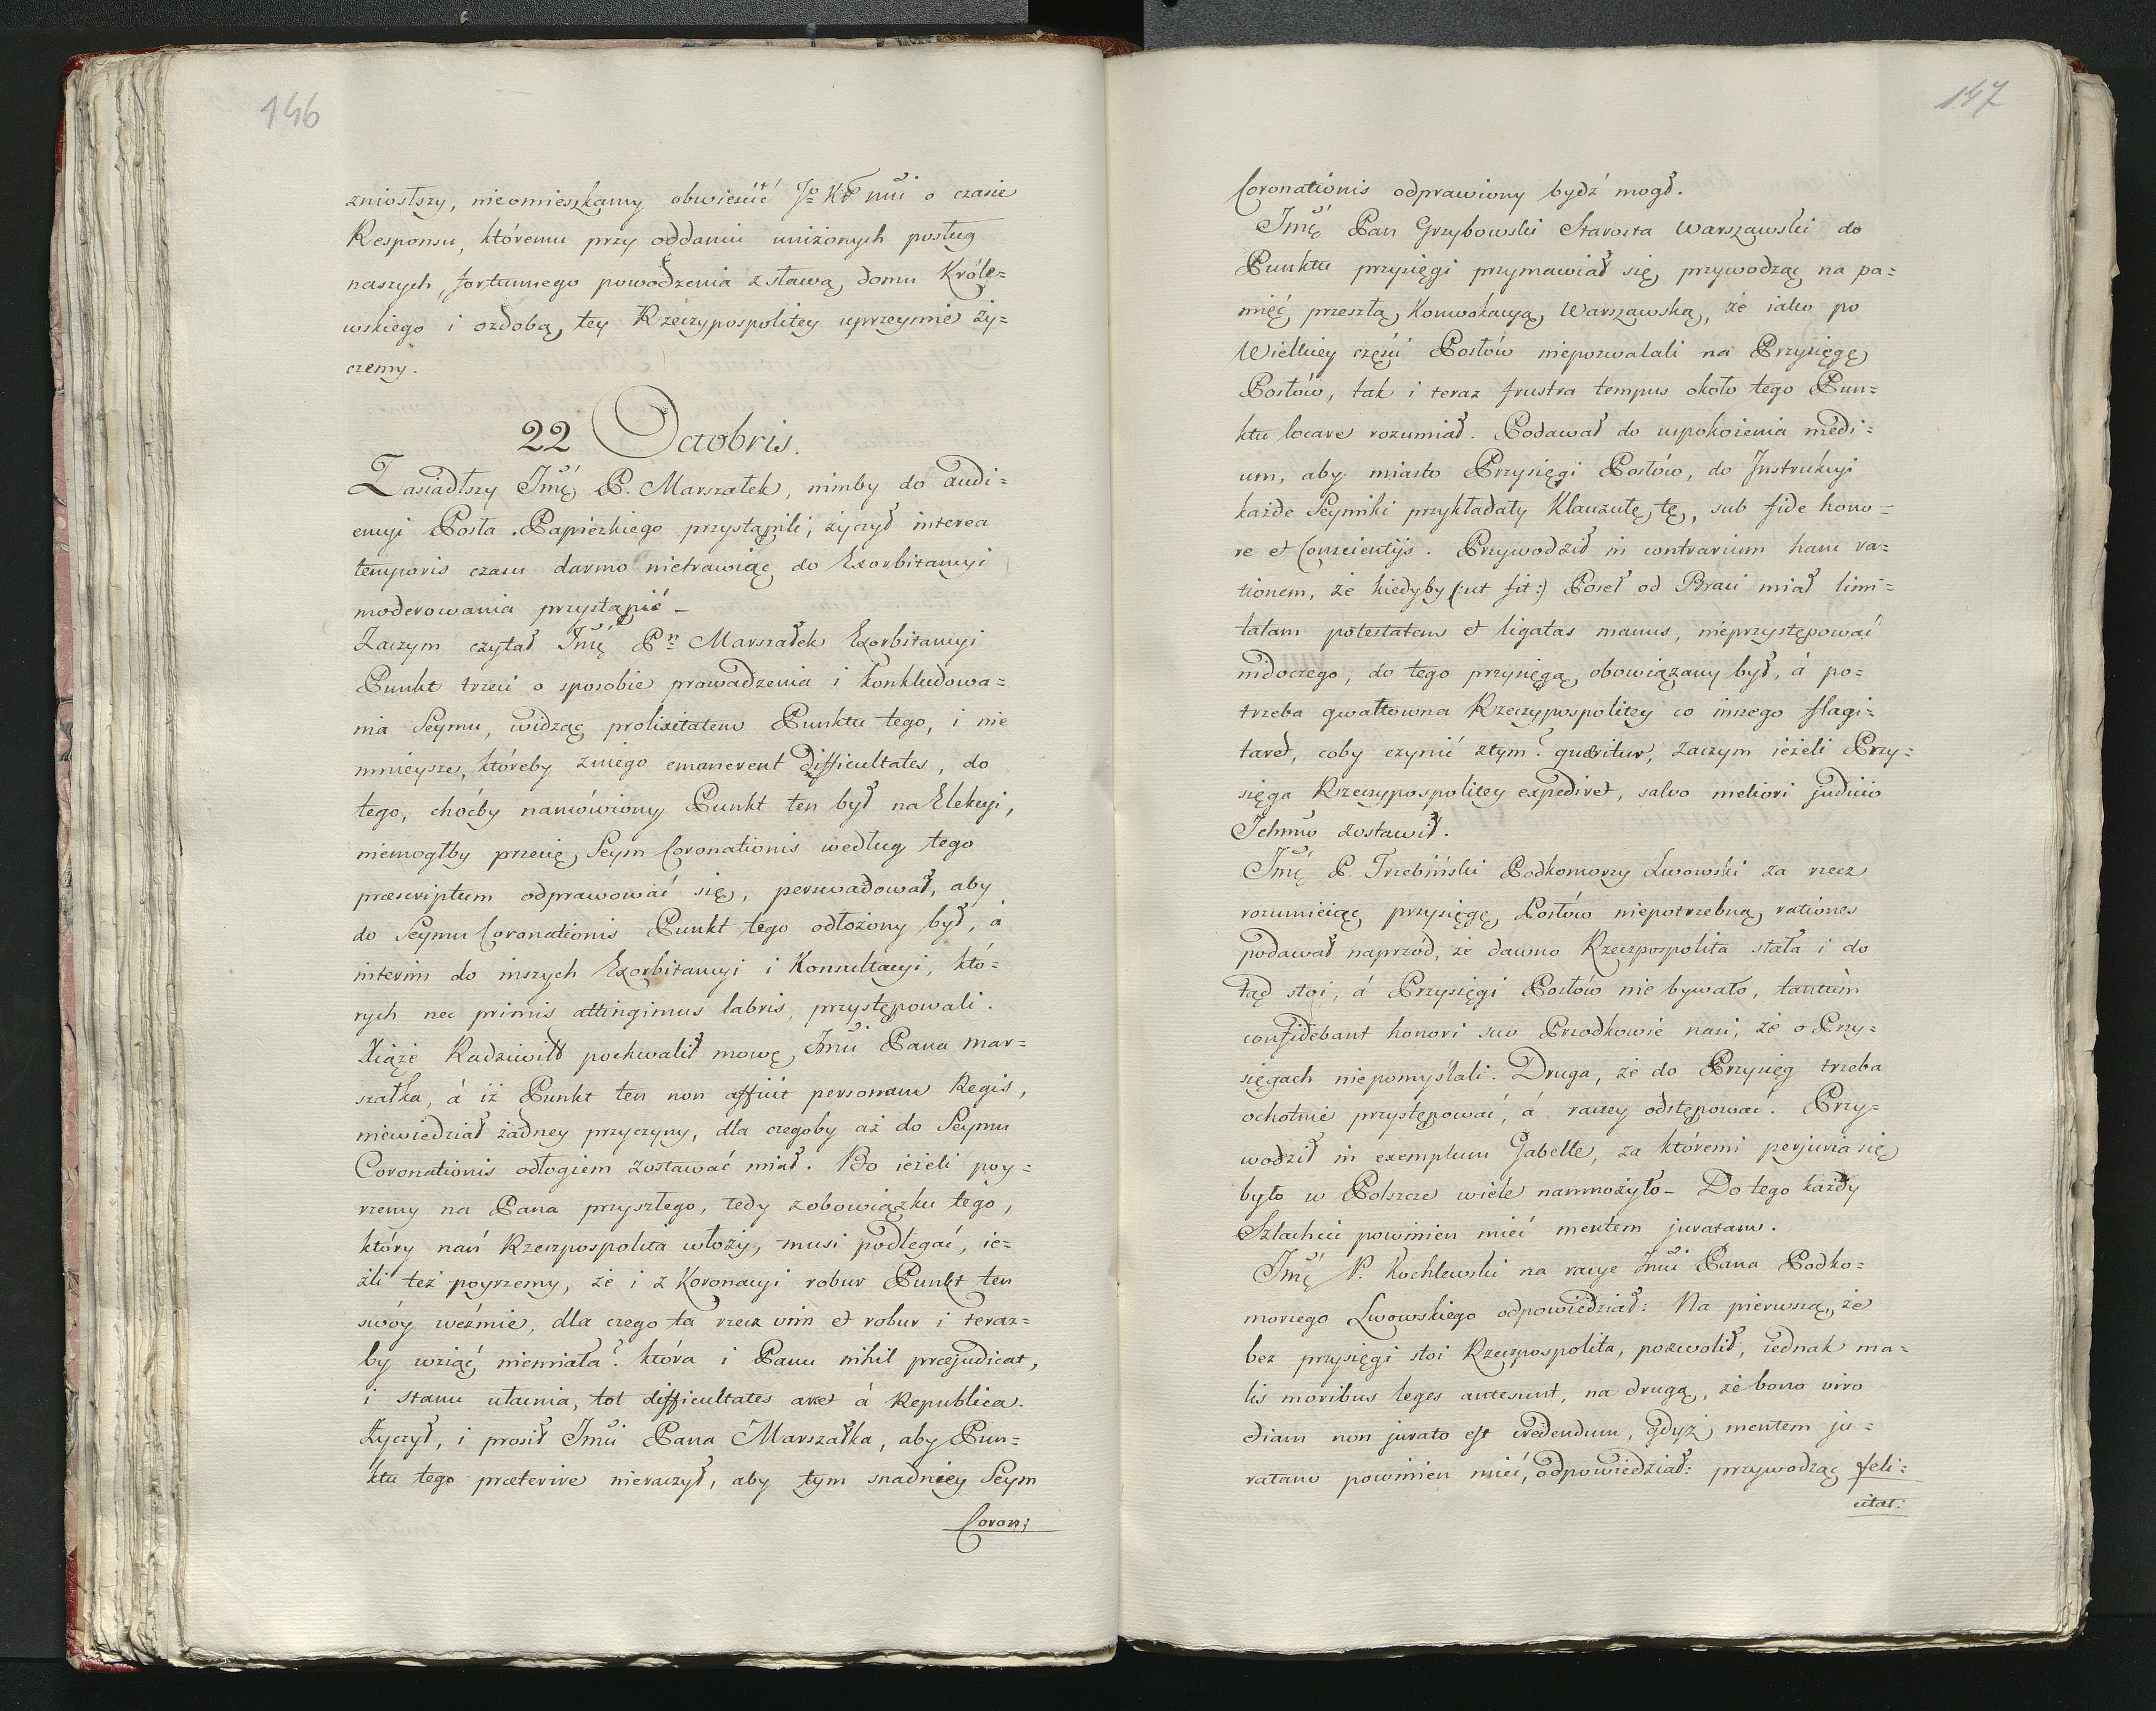 146
zniosłszy, nieomieszkamy obwieścić Jo Kr mći o czasie
Responsu, któremu przy oddaniu uniżonych posług
naszych, fortunnego powodzenia z sławą domu Króle=
wskiego i ozdobą tey Rzeczypospolitey uprzeymie ży=
czemy.
22 Octobris.
Zasiadłszy Jmć P. Marszałek, nimby do audi=
encyi Posła Papiezkiego przystąpili, życzył interea
temporis czasu darmo nietrawiąc do Exorbitancyi
moderowania przystąpić _
Zaczym czytał Jmć Pn Marszałek Exorbitancyi
Punkt trzeci o sposobie prowadzenia i konkludowa=
nia Seymu, widząc prolixitatem Punktu tego, i nie
mnieysze, któreby zniego emanerent difficultates, do
tego, choćby namówiony Punkt ten był na Elekcyi,
niemogłby przecię Seym Coronationis według tego
præscriptum odprawować się, perswadował, aby
do Seymu Coronationis Punkt tego odłożony był, á
interim do inszych Exorbitancyi i Konsultacyi, któ=
rych nec primis attingimus labris, przystępowali.
Xiąże Radziwiłł pochwalił mowę Jmći Pana Mar=
szałka, á iż Punkt ten non afficit personam Regis,
niewiedział żadney przyczyny, dla czegoby aż do Seymu
Coronationis odłogiem zostawać miał. Bo ieżeli poy=
rzemy na Pana przyszłego, tedy zobowiązku tego,
który nań Rzeczpospolita włoży, musi podlegać, ie=
żli też poyrzemy, że i z Koronacyi robur Punkt ten
swóy weźmie, dla czego ta rzecz vim et robur i teraz=
by wziąć niemiała? która i Panu nihil præjudicat,
i stanu ułacnia, tot difficultates arcet á Republica.
Życzył, i prosił Jmći Pana Marszałka, aby Pun=
ktu tego præterire nieraczył, aby tym snadniey Seym
Coron:
147
Coronationis odprawiony bydź mogł.
Jmć Pan Grzybowski Starosta Warszawski do
Punktu przysięgi przymawiał się, przywodząc na pa=
mięć przeszłą Konwokacyą Warszawską, że iako po
Wielkiey części Posłów niepozwalali na Przysięgę
Posłów, tak i teraz frustra tempus około tego Pun=
ktu locare rozumiał. Podawał do uspokoienia medi=
um, aby miasto Przysięgi Posłów, do Instrukcyi
każde Seymiki przykładały Klauzulę tę, sub fide hono=
re et Conscientijs. Przywodził in contrarium hanc ra=
tionem, że kiedyby (:ut fit:) Poseł od Braci miał limi=
tatam potestatem et ligatas manus, nieprzystępować
nidoczego, do tego przysięgą obowiązany był, á po=
trzeba gwałtowna Rzeczypospolitey co inszego flagi=
taret, coby czynić ztym? quæritur, zaczym ieżeli Przy=
sięga Rzeczypospolitey expediret, salvo meliori judicio
Ichmw zostawił.
Jmć P. Trzebiński Podkomorzy Lwowski za rzecz
rozumieiąc przysięgę Posłów niepotrzebną rationes
podawał naprzód, że dawno Rzeczpospolita stała i do
tąd stoi, á Przysięgi Posłów nie bywało, tantum
confidebant honori suo Przodkowie nasi, że o Przy=
sięgach niepomyślali. Druga, że do Przysięg trzeba
ochotnie przystępować, á raczey odstępować. Przy=
wodził in exemplum Gabelle, za któremi perjuria się
było w Polszcze wiele namnożyło_ Do tego każdy
Szlachcic powinien mieć mentem juratam.
Jmć P. Kochlewski na racye Jmći Pana Podko=
morzego Lwowskiego odpowiedział: Na pierwszą, że
bez przysięgi stoi Rzeczpospolita, pozwolił, iednak ma=
lis moribus leges antesunt, na drugą, że bono viro
etiam non jurato est credendum, gdyż mentem ju=
ratam powinien mieć, odpowiedział: przywodząc feli=
citat: